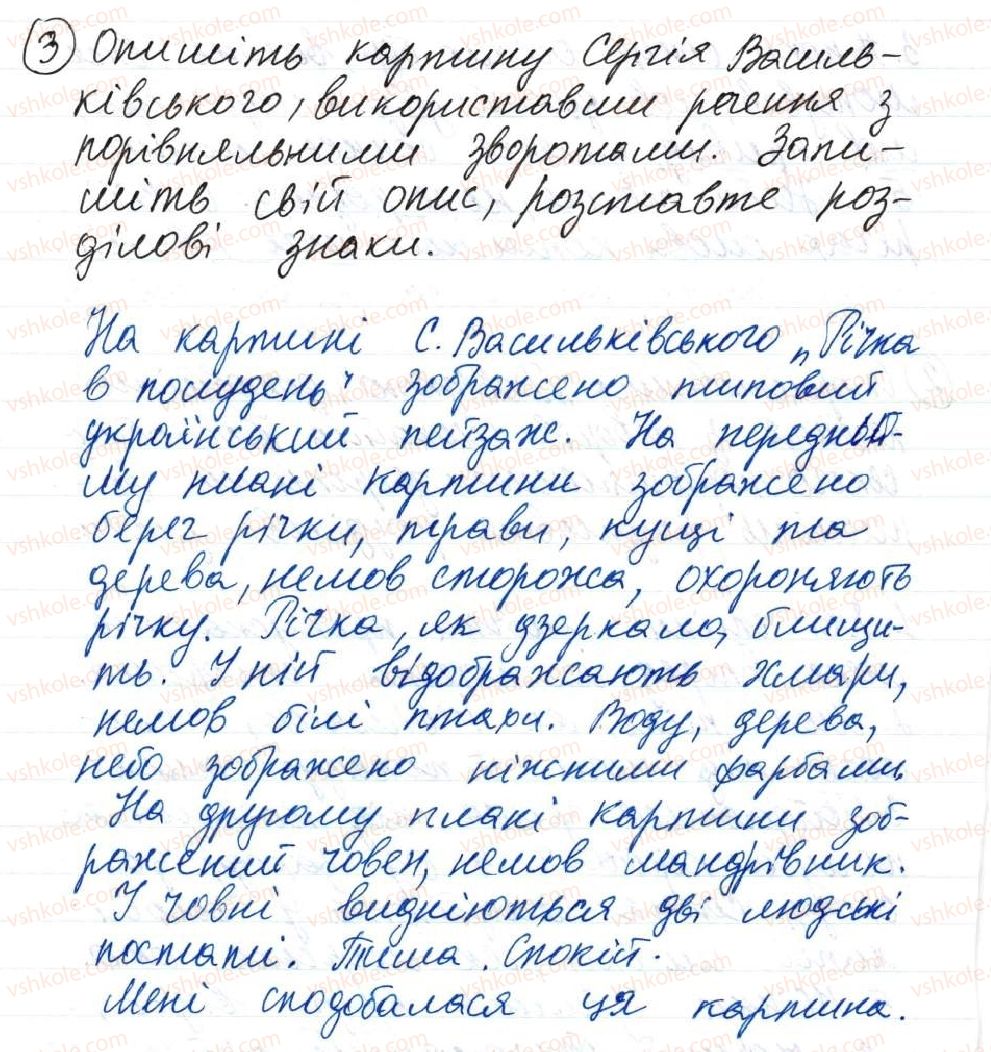 ③ Опишіть картину Сергія Василь-
ківського, використавши речення з
порівняльними зворотами. Запи-
шіть свій опис, розставте роз-
ділові знаки.
На картині С. Васильківського „Річка
в полудень" зображено типовий
український пейзаж. На передньо-
му плані картини зображено
берег річки, трави, кущі та
дерева, немов сторожа, охороняють
річку. Річка, як дзеркало, блищи-
ть. У ній відображають хмари,
немов білі птахи. Воду, дерева,
небо зображено ніжними фарбами.
На другому плані картини зоб-
ражений човен, немов мандрівник.
У човні видніються дві людські
постаті. Тиша. Спокій.
Мені сподобалася ця картина.